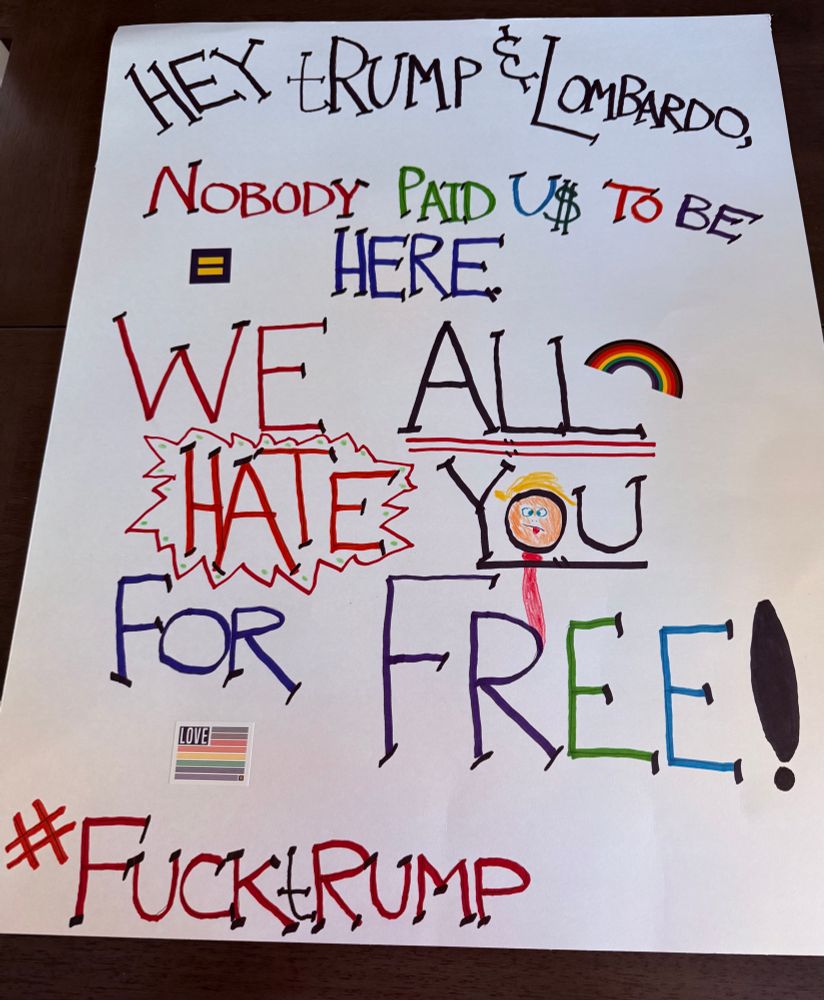 HEY tRUMP & LOMBARDO,
NOBODY PAID U$ TO BE
=
HERE.
WE ALL
HATE YOU
FOR FREE!
LOVE
#FUCKtRUMP